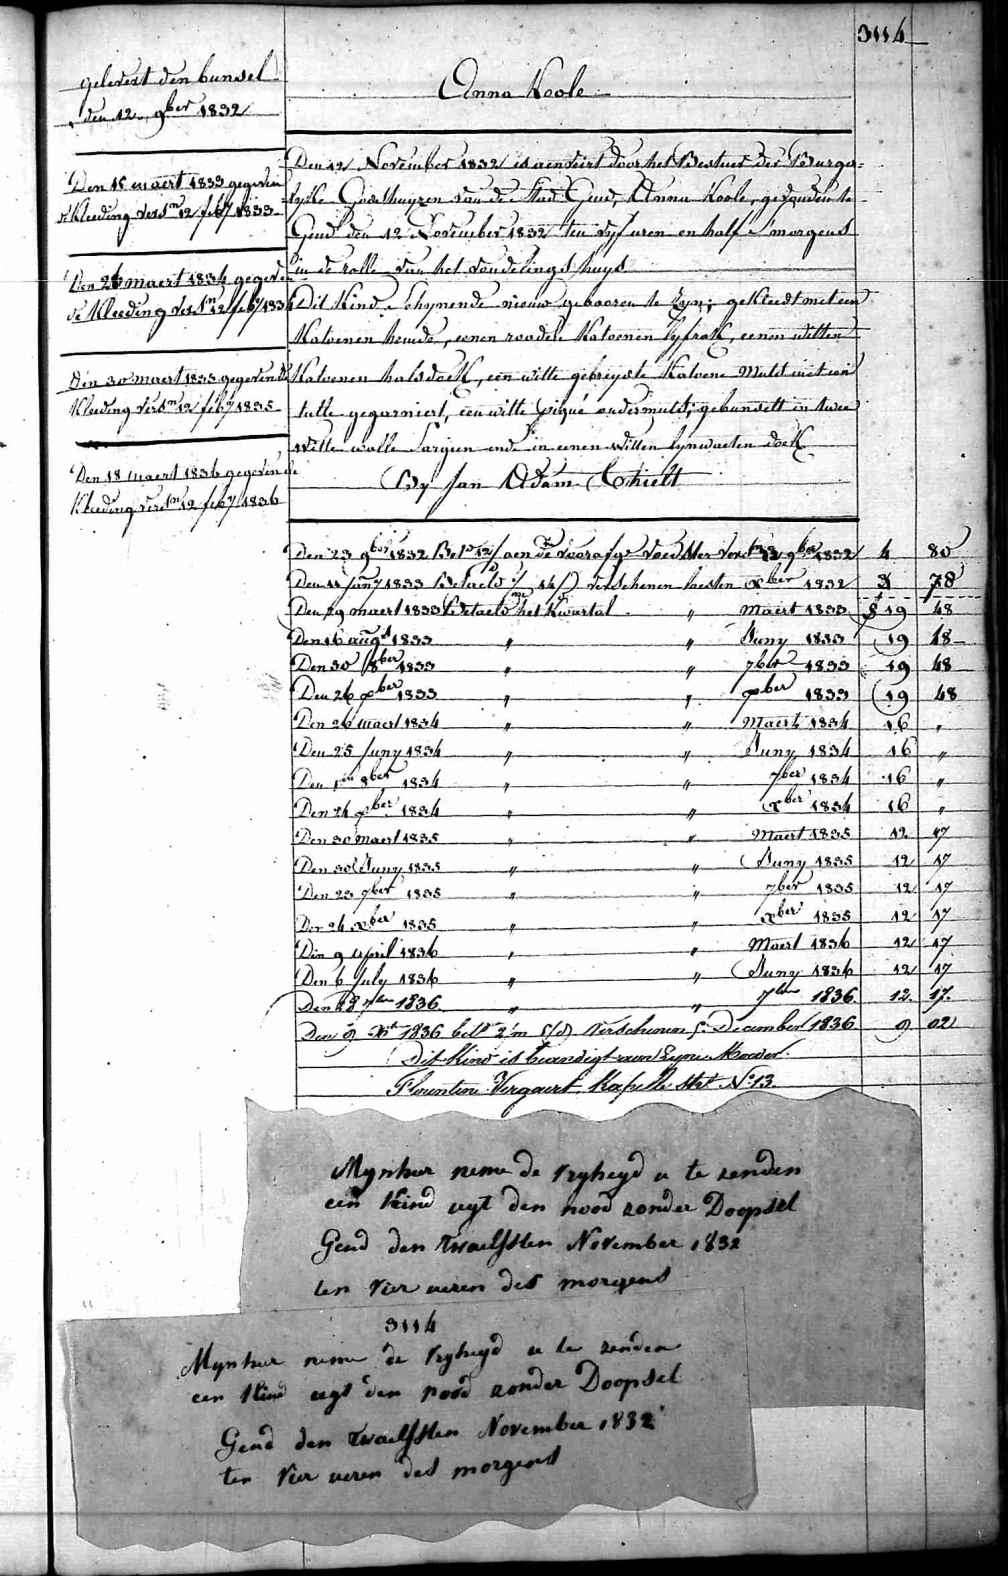 3114
gelevert den bunsel
den 12 9ber 1832
Anna Koole
Den 15 maert 1833 gegeven
de Kleeding versn 12 feby 1833
Den 26 maert 1834 gegeven
de Kleeding versn 12 feby 1834
Den 30 maert 1835 gegeven de
Kleeding versn 12 feby 1835
Den 18 maert 1836 gegeven de
Kleeding versn 12 feby 1836
Den 12 November 1832 is aenveirt door het Bestuer der Burger-
lyke Godshuyzen van de Stad Gend, Anna Koole, gevonden te
Gend den 12 November 1832 ten vyf uren en half s morgens
in de rolle van het vondelings huys
Dit Kind schynende nieuw gebooren te zyn; gekleedt met een
Katoenen hemde, eenen rooden Katoenen lyfrok, eenen witten
Katoenen halsdoek, een witte gebreyde Katoene Muts met een
tulle gegarniert, een witte piqué ondermuts; gebunselt in twee
witte wolle Sargien ende in eenen witten lynwaeten doek
By Jan Adam Thielt
Den 23 9ber 1832 Beta 12/ aen de voorafge voedster versn 12 9ber 1832 4 80
Den 14 Juny 1833 Betaeld verschenen laesten xber 1832 3 78
Den 29 maert 1833 Betaeld het Kwartal " Maert 1833 19 48
Den 16 augt 1833 " " Juny 1833 19 48
Den 30 8ber 1833 " " 7ber 1833 19 48
Den 26 xber 1833 " " xber 1833 19 48
Den 26 maert 1834 " " Maert 1834 16 "
Den 25 Juny 1834 " " Juny 1834 16 "
Den 1en 8ber 1834 " " 7ber 1834 16 "
Den 24 xber 1834 " " xber 1834 16 "
Den 30 maert 1835 " " Maert 1835 12 17
Den 30 Juny 1835 " " Juny 1835 12 17
Den 23 7ber 1835 " " 7ber 1835 12 17
Den 24 xber 1835 " " xber 1835 12 17
Den 9 april 1836 " " Maert 1836 12 17
Den 6 July 1836 " " Juny 1836 12 17
Den 28 7ber 1836 " " 7ber 1836 12 17
Den 9 Xbr 1836 betd 2/m verschenen 5 December 1836 9 02
Dit Kind is behandigt aen Zyne Moeder
Florentine Vergaert Kapelle Strt No 13
Mynheer neme de vryheyd u te zenden
een Kind uyt den nood zonder Doopsel
Gend den Twaelfsten November 1832
ten vier ueren des morgens
3114
Mynheer neme de vryheyd u te zenden
een Kind uyt den nood zonder Doopsel
Gend den twaelfsten November 1832
ten vier ueren des morgens